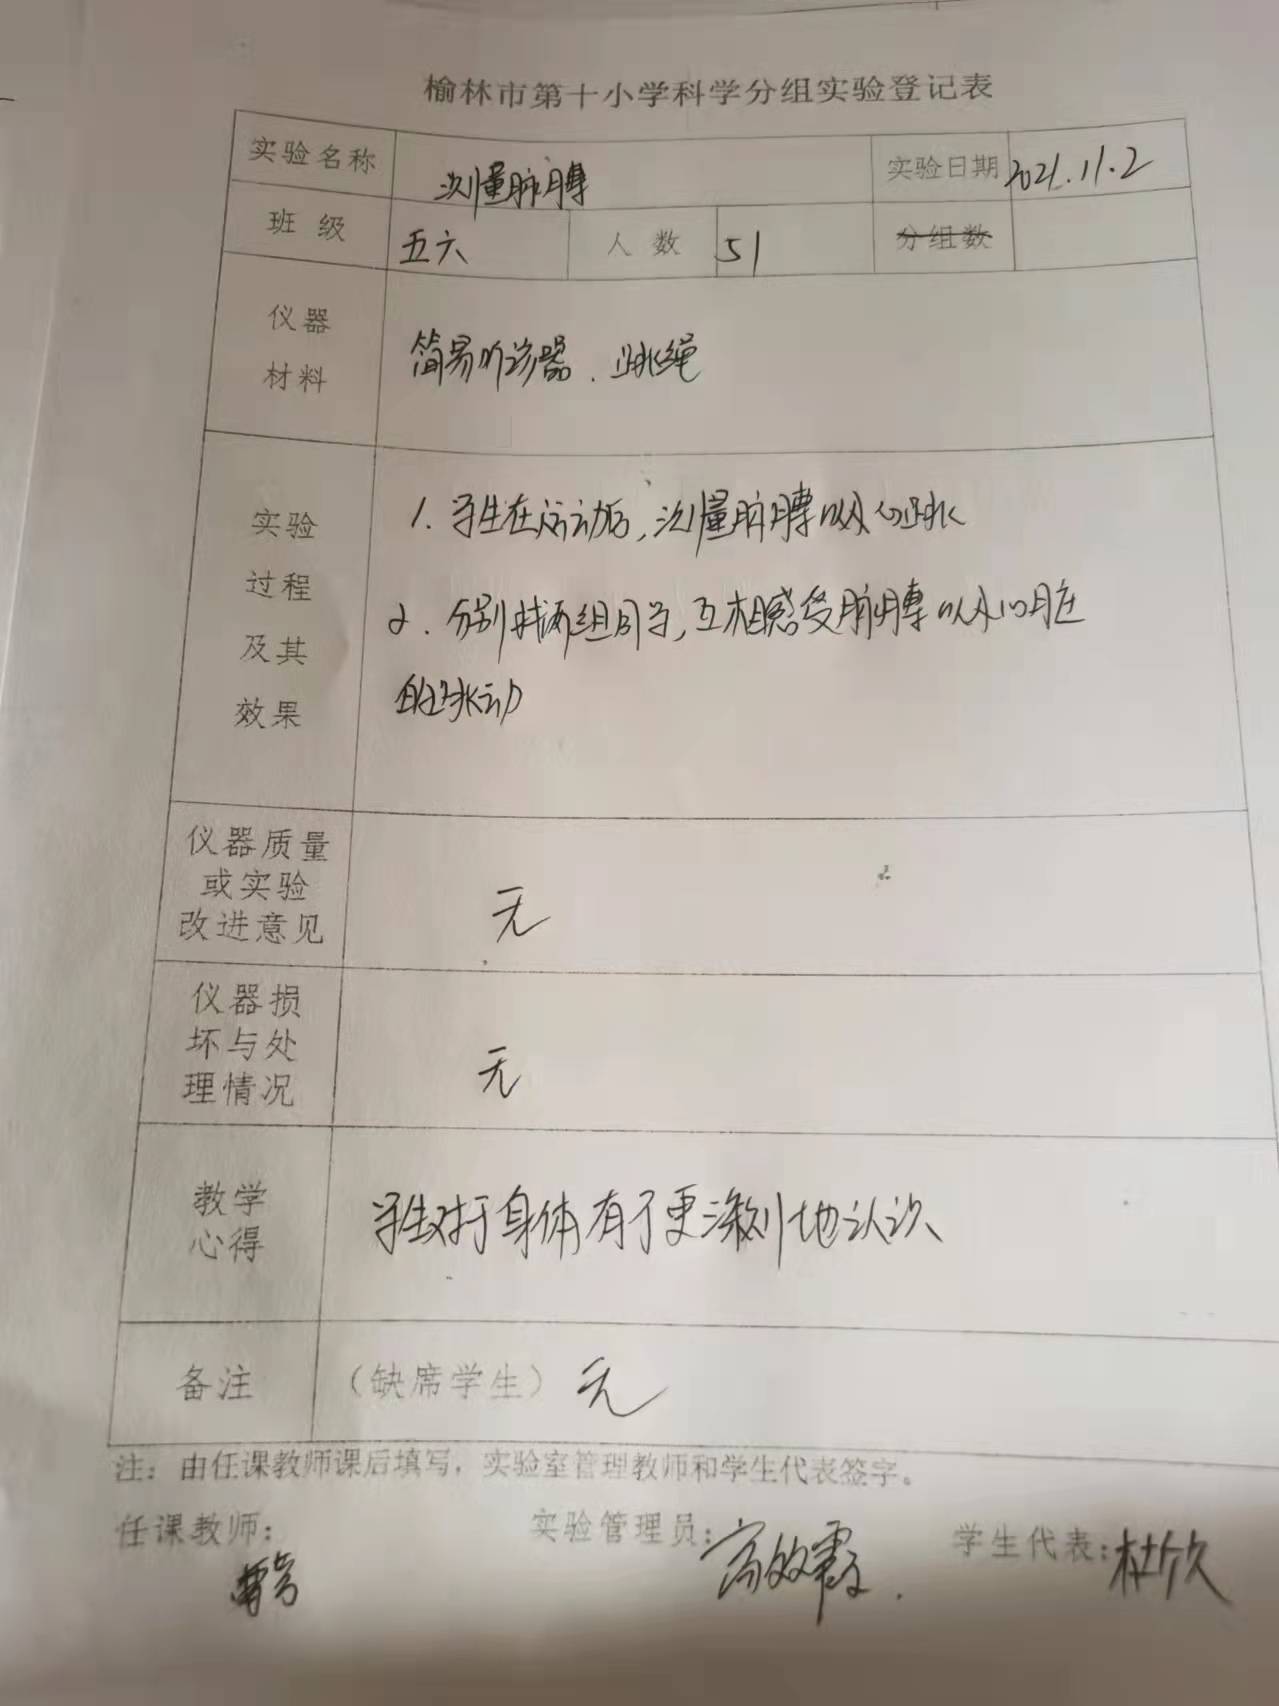 榆林市第十小学科学分组实验登记表
实验名称 测量脉搏 实验日期 2021.11.2
班级 五六 人数 51 分组数
仪器
材料
简易听诊器、跳绳
实验
过程
及其
效果
1. 学生在运动后,测量脉搏以及心跳
2. 分别找两组同学,互相感受脉搏以及心脏
的跳动
仪器质量
或实验
改进意见
无
仪器损
坏与处
理情况
无
教学
心得
学生对于身体有了更深刻地认识
备注 (缺席学生) 无
注:由任课教师课后填写,实验室管理教师和学生代表签字。
任课教师: 实验管理员: 高效霞. 学生代表: 杜欣